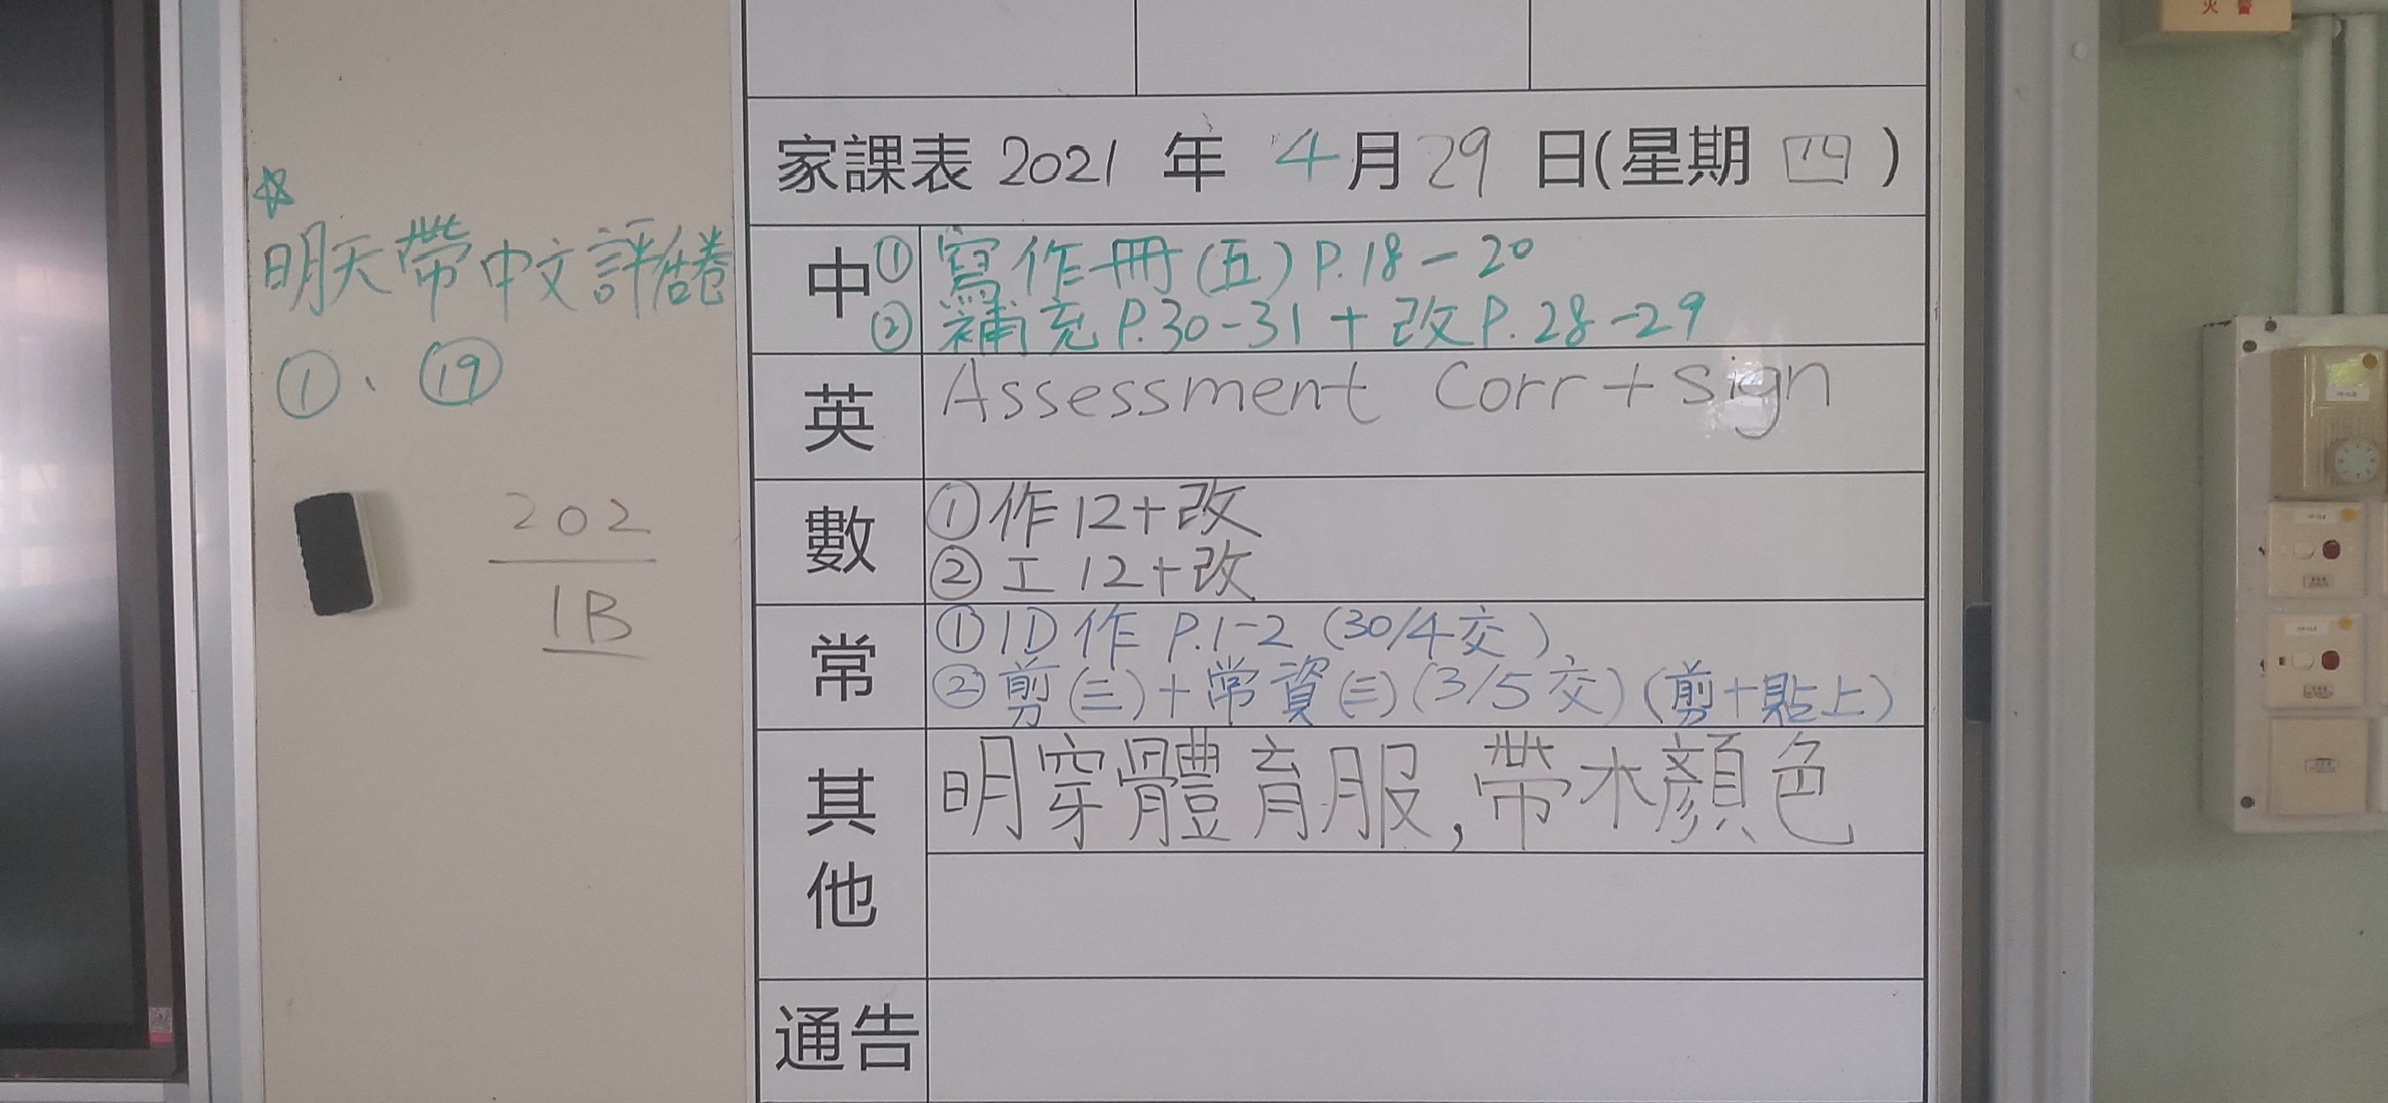 火警
家課表 2021 年 4月29 日(星期四)
☆
明天帶中文評估卷
①、⑲
202
1B
中
①寫作冊(五)P.18-20
②補充P.30-31+改P.28-29
英
Assessment Corr+sign
數
①作12+改
②工12+改
常
①1D作 P.1-2 (30/4交)
②剪(三)+常資(三)(3/5交)(剪+貼上)
其他
明穿體育服,帶木顏色
通告